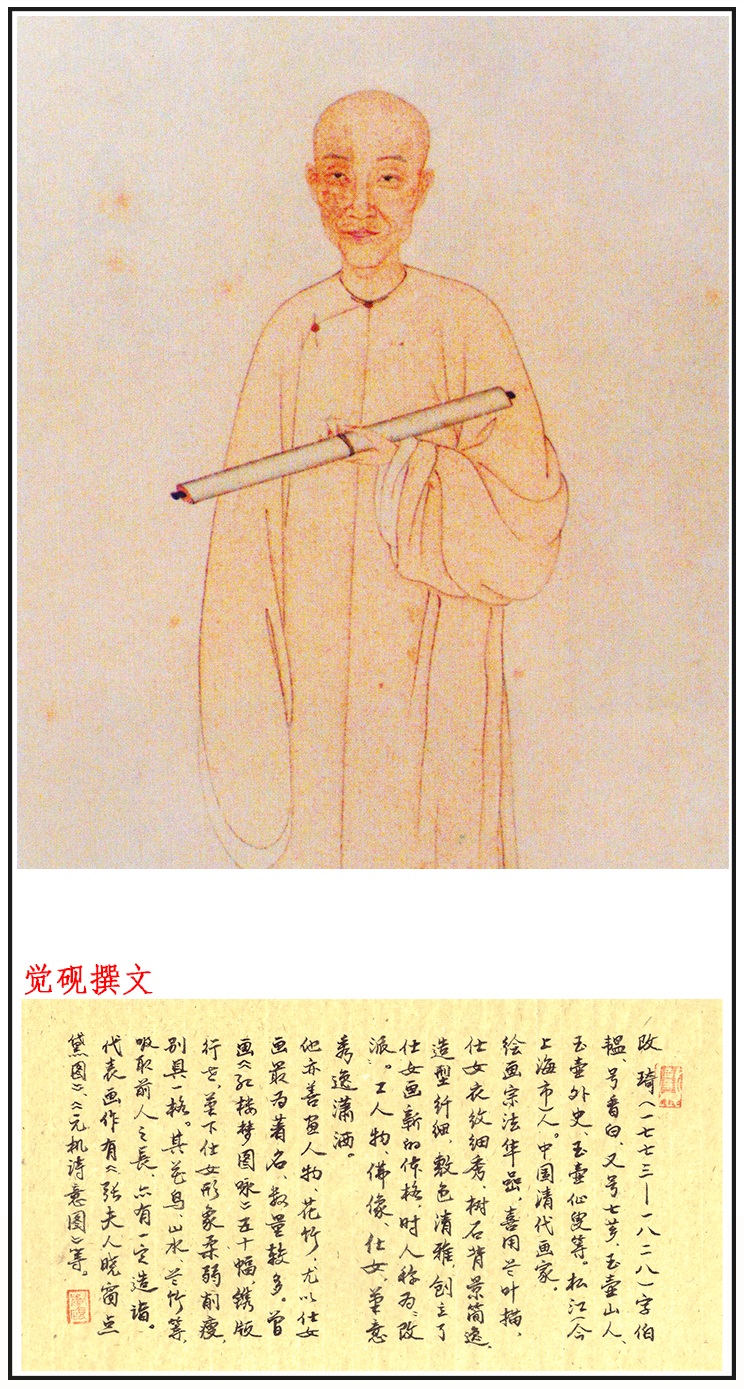 觉砚撰文
改琦(一七七三—一八二八)字伯
韫、号香白、又号七芗、玉壶山人、
玉壶外史、玉壶仙叟等。松江(今
上海市)人。中国清代画家。
绘画宗法华喦,喜用兰叶描,
仕女衣纹细秀,树石背景简逸,
造型纤细,敷色清雅,创立了
仕女画新的体格,时人称为、改
派。工人物、佛像、仕女,笔意
秀逸潇洒。
他亦善画人物、花竹,尤以仕女
画最为著名、数量较多。曾
画《红楼梦图咏》五十幅,镌版
行世,笔下仕女形象柔弱削瘦,
别具一格。其花鸟、山水、兰竹等,
吸取前人之長,亦有一定造诣。
代表画作有《张夫人晓窗点
黛图》、《元机诗意图》等。